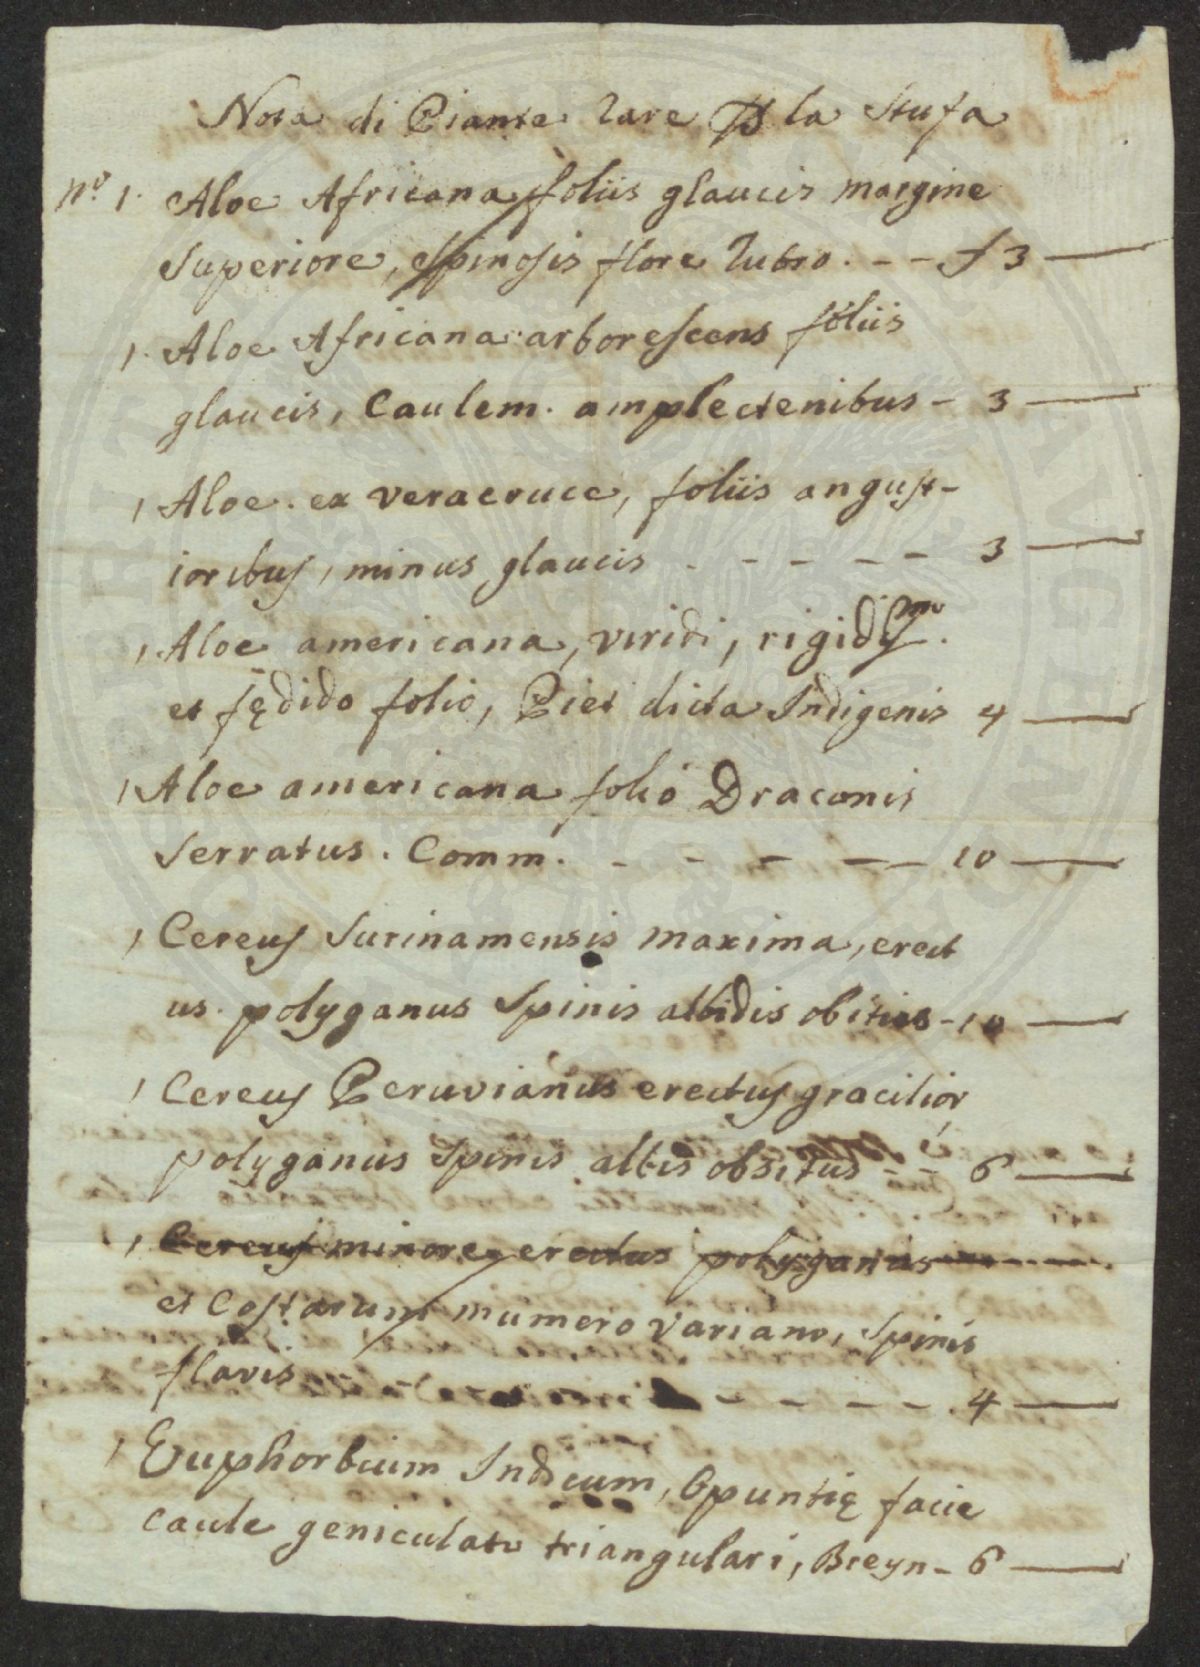 Nota di Piante rare ꝑ la Stufa
Nº. 1. Aloe Africana foliis glaucis margine
Superiore, Spinosis flore rubro. - - f 3 —
1. Aloe Africana arborescens foliis
glaucis, Caulem. amplectenibus - 3 —
1 Aloe. ex veracruce, foliis angust-
ioribus, minus glaucis - - - - - 3 —
1 Aloe americana, viridi, rigidis̃mo.
et fędido folio, Piet dicta Indigenis 4 —
1 Aloe americana folio Draconis
Serratus. Comm. - - - - - 10 —
1 Cereus Surinamensis maxima, erect
us. polyganus Spinis albidis - 10 —
1 Cereus Peruvianus erectus gracilior
polyganus Spinis albis obsitus - - 6 —
1 Cereus minore erectus polyganus
et Costarum numero variano, Spinis
flavis - - - - - - - 4 —
1 Euphorbium Indicum, Opuntię facie
caule geniculato triangulari, Breyn - 6 —